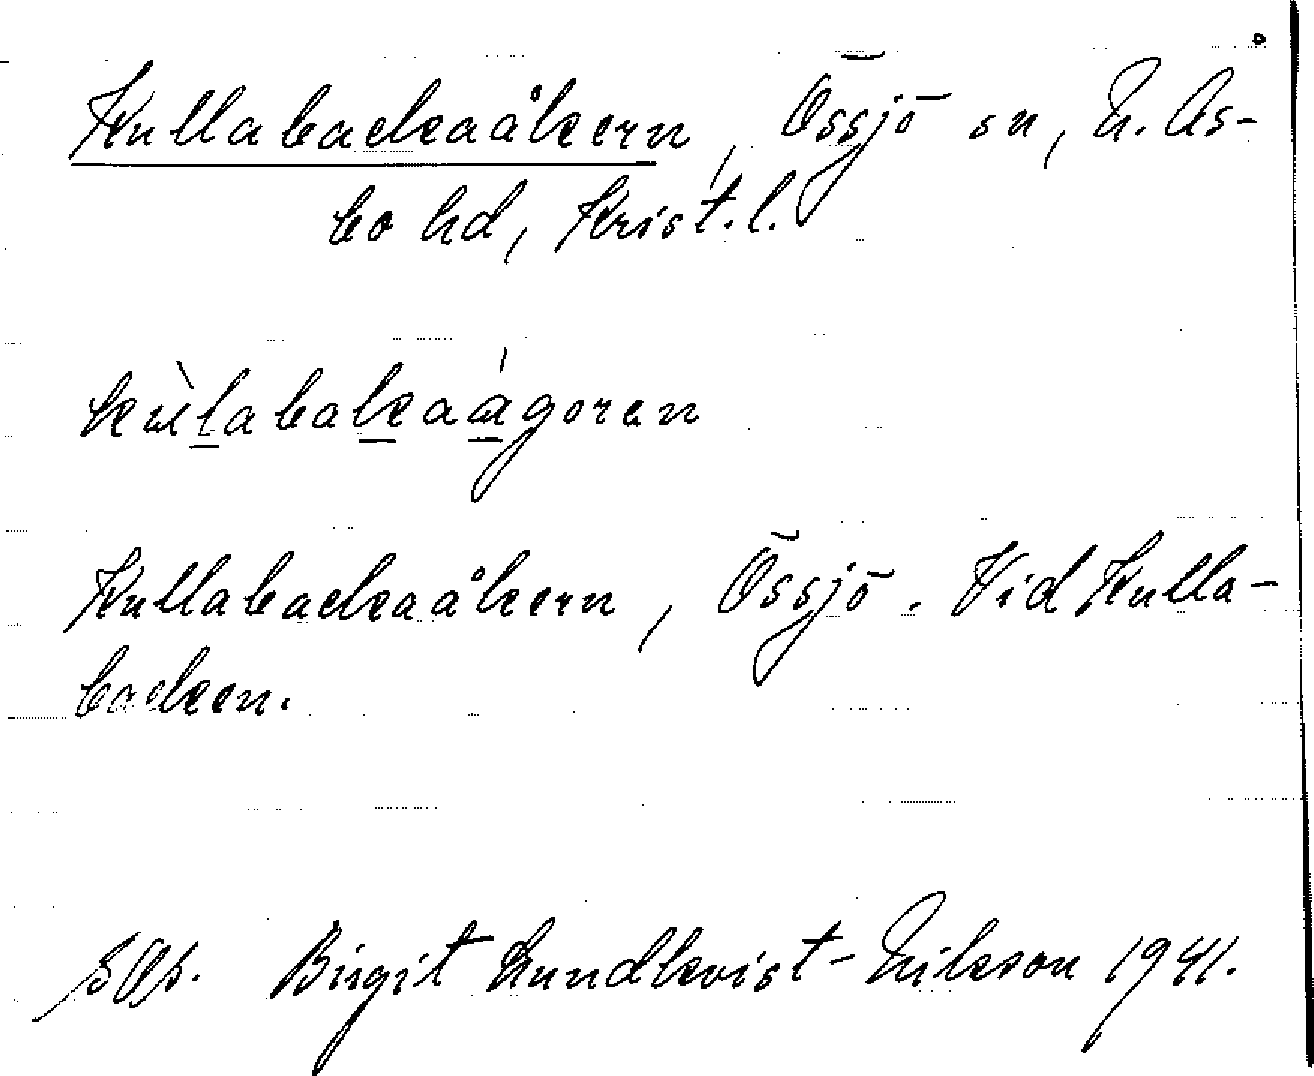 Kullabackaåkern, Össjö sn, N. Ås-
bo hd, Krist. l.
kùlabakaágoren
Kullabackaåkern, Össjö. Vid Kulla-
backen.
Birgit Lundkvist-Nilsson 1941.